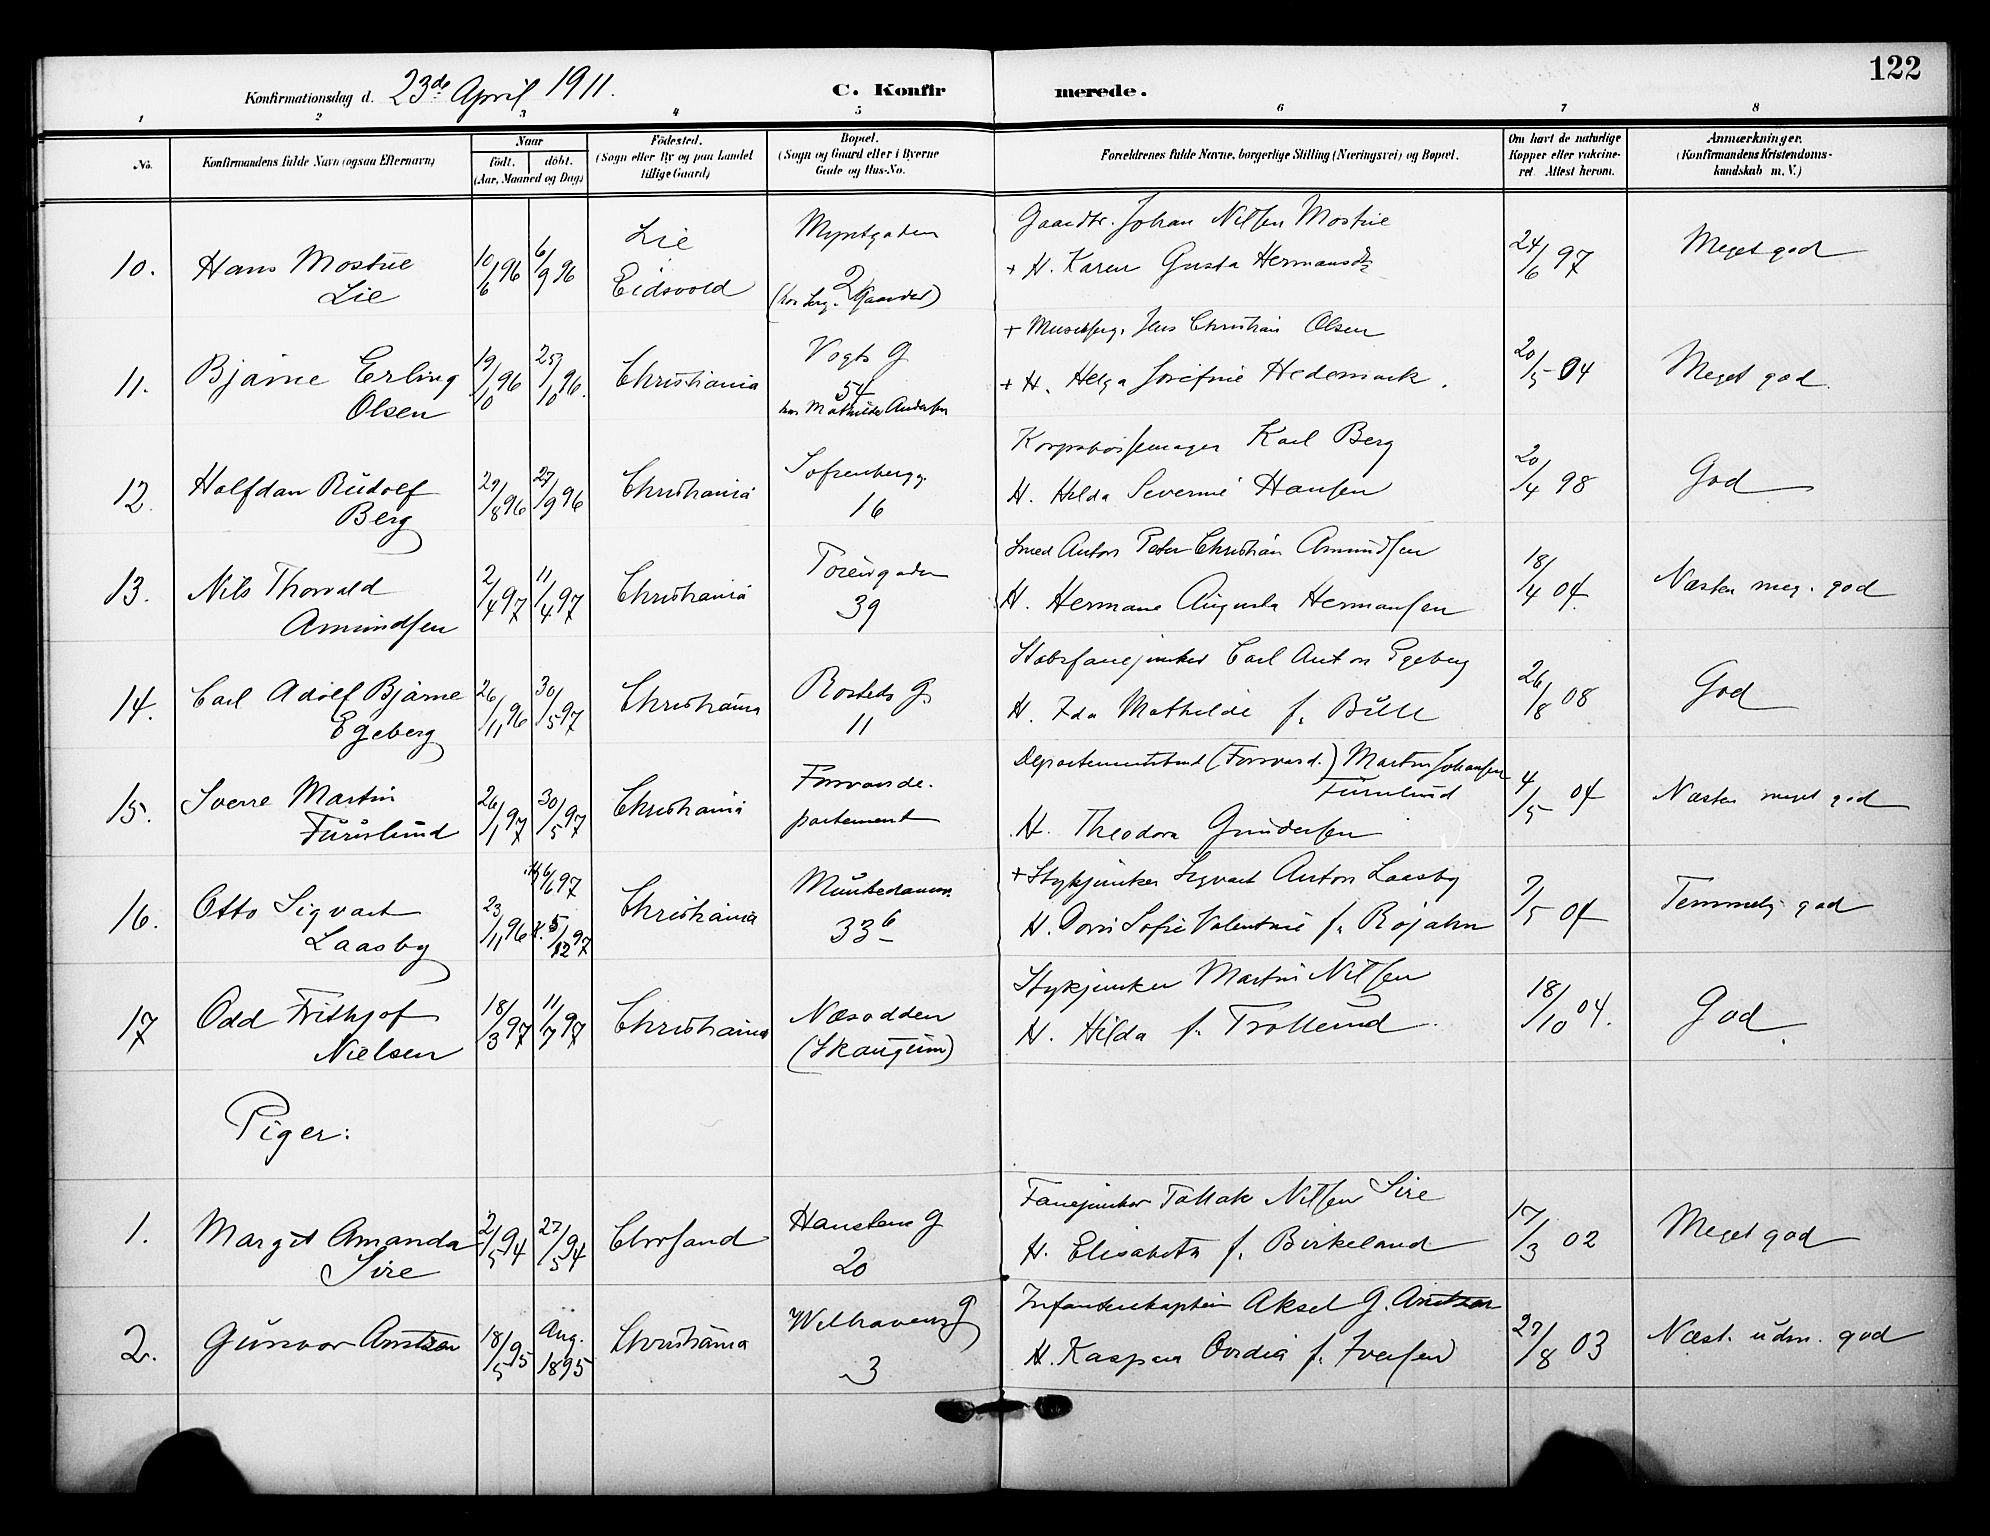 122
Konfirmationsdag d. 23de April 1911. C. Konfirmerede.
1 2 3 4 5 6 7 8
No. Konfirmandens fulde Navn (ogsaa Efternavn) Naar født. døbt. (Aar, Maaned og Dag) Fødested. (Sogn eller By og paa Landet tillige Gaard) Bopæl. (Sogn og Gaard eller i Byerne Gade og Hus-No. Forældrenes fulde Navne, borgerlige Stilling (Næringsvei) og Bopæl. Om havt de naturlige Kopper eller vakcineret. Attest herom. Anmærkninger. (Konfirmandens Kristendomskundskab m. V.)
10. Hans Mostue Lie 10/6 96 6/9 96 Lie Eidsvold Myntgaden 2 (hos Serg. Gaarder) Gaardbr. Johan Nilsen Mostue
+ H. Karen Gusta Hermansdtr 24/6 97 Meget god
11. Bjarne Erling Olsen 19/10 96 25/10 96. Christiania Vogts G 54 hos Mathilde Andersen + Jens Christian Olsen
+ H. Helga Josefine Hedemark. 20/5 04 Meget god.
12. Halfdan Rudolf Berg 29/8 96 27/9 96 Christiania Sofienbergg. 16 Korpsbøssemager Karl Berg
H. Hilda Severine Hansen 20/4 98 God
13. Nils Thorvald Amundsen 2/4 97 11/4 97 Christiania Torengaden 39 Smed Anton Peter Christian Amundsen
H. Hermane Augusta Hermansen 18/4 04. Næsten meg. god
14. Carl Adolf Bjarne Egeberg 26/11 96 30/5 97 Christiania Rosteds G 11 Stabsfanejunker Carl Anton Egeberg
H. Ida Mathilde f. Bull 26/8 08 God
15. Sverre Martin Furuslund 26/1 97 30/5 97 Christiania Forsvarsde-partement Departementsbud (Forsvarsd.) Martin Johansen Furulund
H. Theodora Gundersen 4/5 04 Næsten meget god
16. Otto Sigvart Laasby 23/11 96 6/6 97 K. 5/12 97 Christiania Munkedamsv. 33 b + Stykjunker Sigvart Anton Laasby
H. Doris Sofie Valentine f. Rojahn 7/5 04 Temmelig god
17 Odd Frithjof Nielsen 18/3 97 11/7 97 Christiania Næsodden (Skaugum) Stykjunker Martin Nilsen
H. Hilda f. Trollund. 18/10 04. God.
Piger:
1. Margit Amanda Sire 2/5 94 27/5 94 Chrsand Hanstens G 20 Fanejunker Tallak Nilsen Sire
H. Elisabeth f. Birkeland 17/3 02 Meget god
2. Gunvor Arntzen 18/5 95 Aug. 1895 Christiania Welhavens G 3 Infanterikaptein Aksel G. Arntzen
H. Kaspara Ovidia f. Iversen 27/8 03 Næst. udm. god